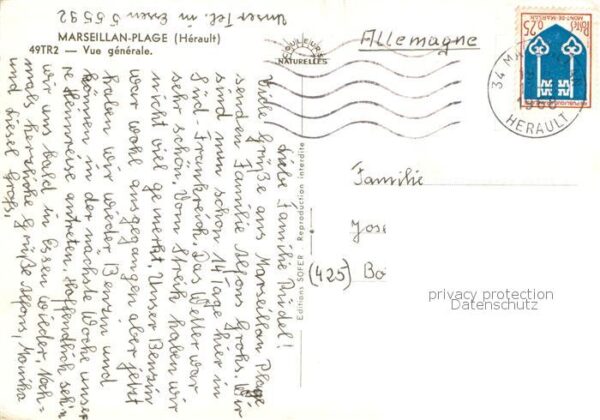 Unser Tel. in Essen 5 55 92
MARSEILLAN-PLAGE (Hérault)
49TR2 — Vue générale.
COULEURS
NATURELLES
Allemagne
0,25
MONT-DE-MARSAN
34 MA
1968
HERAULT
Liebe Familie Pindel!
Viele Grüße aus Marseillan Plage
senden Familie Alfons Grohs. Wir
sind nun schon 14 Tage hier in
Süd-Frankreich. Das Wetter war
sehr schön. Vom Streik haben wir
nicht viel gemerkt. Unser Benzin
war wohl ausgegangen aber jetzt
haben wir wieder Benzin und
können in der nächste Woche unser
e Heimreise antreten. Hoffendlich seh'n
wir uns bald in Essen wieder. Noch-
mals herzliche Grüße Alfons, Monika
und Liesel Grohs,
Editions SOFER - Reproduction interdite
Familie
Jos
(425) Bo
privacy protection
Datenschutz